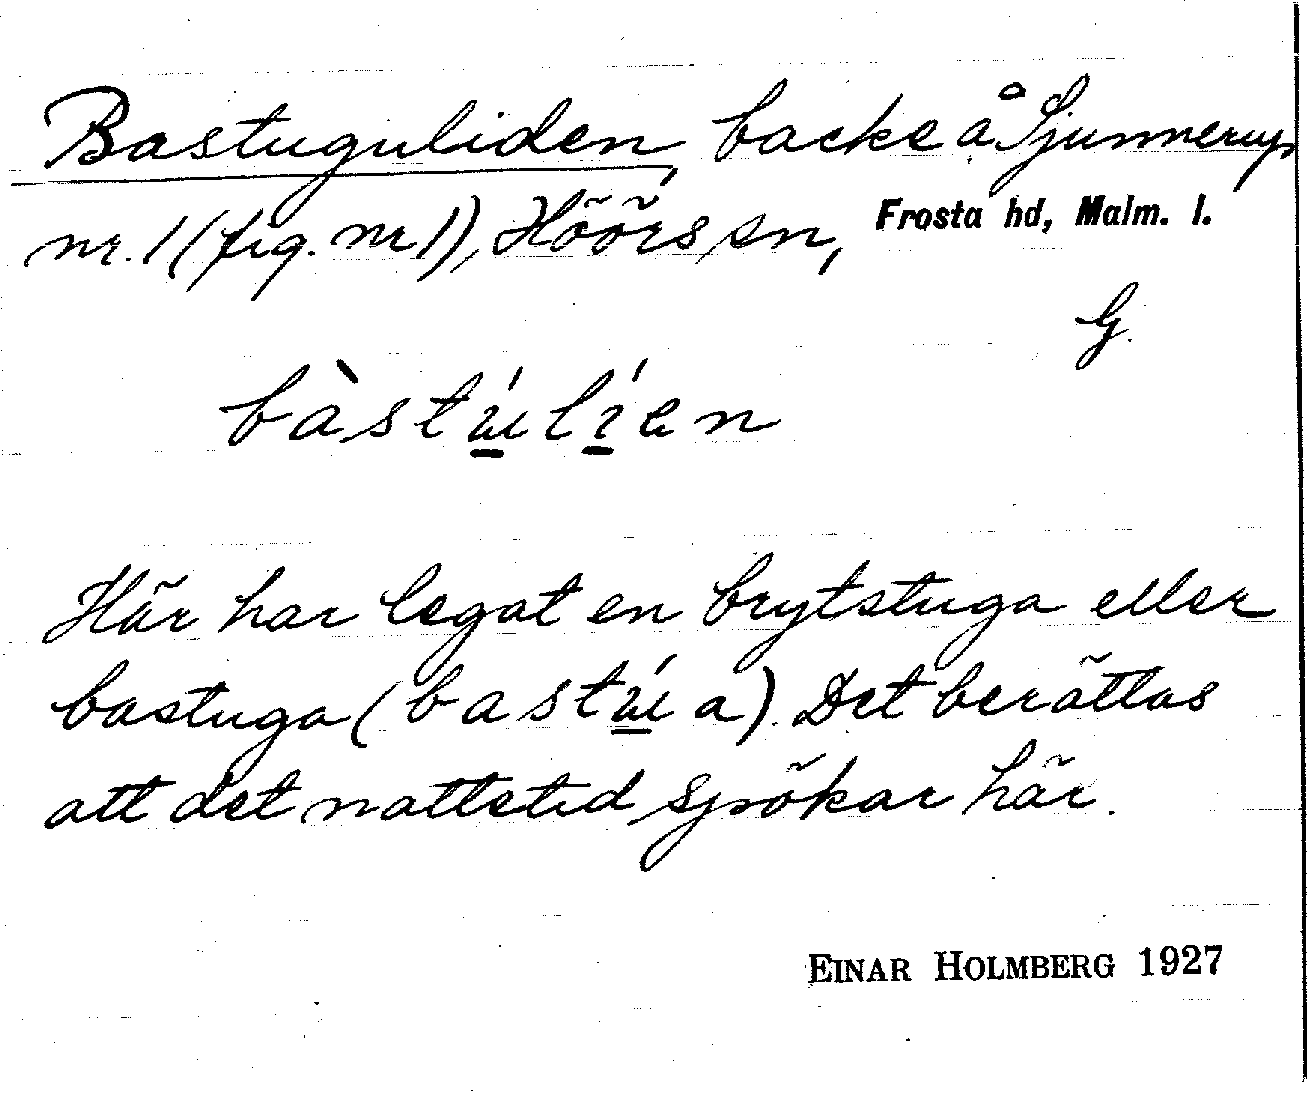 Bastuguliden, backe å Sjunnerup
nr. 1 (fig. nr 1), Höörs sn, Frosta hd, Malm. l.
G.
bàstú̲lí̲en
Här har legat en brytstuga eller
bastuga (bastú̲a). Det berättas
att det nattetid spökar här.
EINAR HOLMBERG 1927